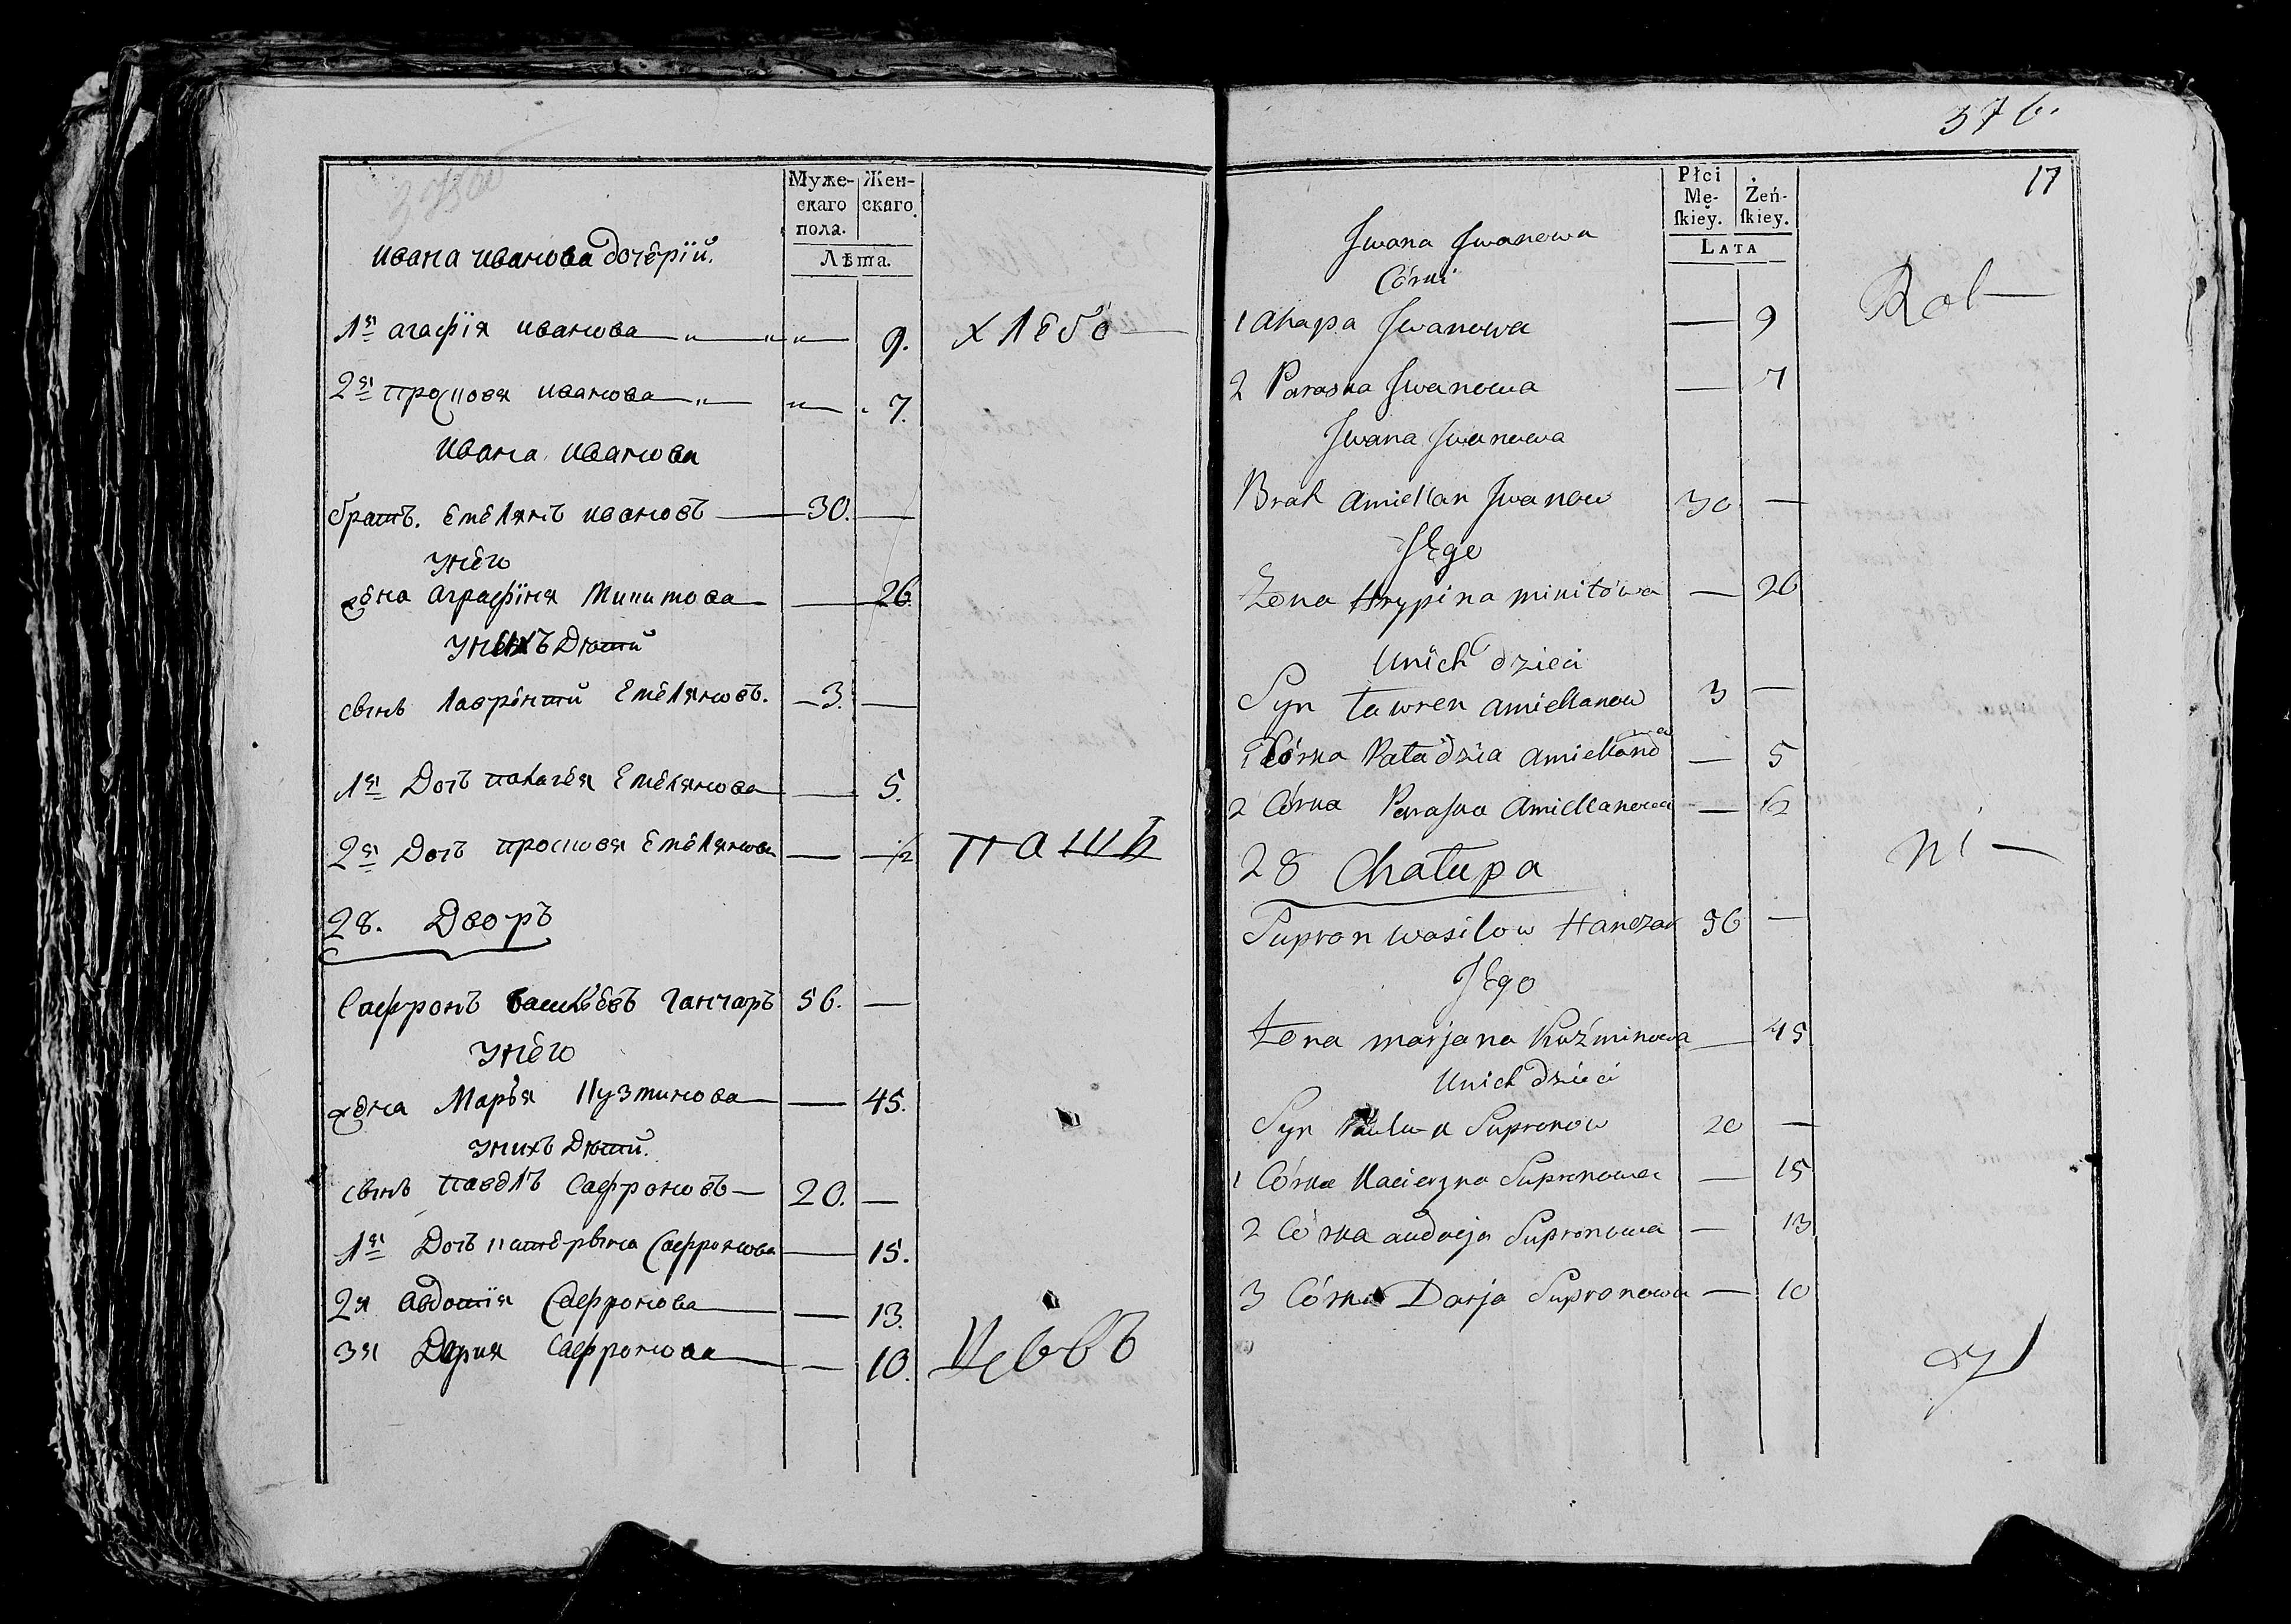 Муже-
скаго
пола.
Жен-
скаго.
Лѣта.
Ивана Иванова дочерїй.
1я агафїя иванова — 9.
хлебо
2я просковя иванова — 7.
Ивана Иванова
братъ. Емелянъ ивановъ — 30. —
У него
жена аграфїня Микитова — 26.
У нихъ дѣтий
сынъ лаврентий Емеляновъ. — 3. —
1я дочь палагея Емелянова — 5.
2я дочь просковя Емелянова — ½
пашъ
28. Дворъ
Сафронъ васильевъ ганчаръ 56. —
У него
жена Марья Кузминова — 45.
У нихъ дѣтий.
сынъ павелъ Сафроновъ — 20. —
1я дочь катерына Сафронова — 15.
2я авдотїя Сафронова — 13.
3я Дария Сафронова — 10.
376.
17
Płci
Mę-
skiey.
Żeń-
skiey.
LATA
Jwana Jwanowa
Córki
1 Ahapa Jwanowa — 9
Rol—
2 Paraska Jwanowa — 7
Jwana Jwanowa
Brat Amiellan Jwanow 30 —
Jego
Żona Hrypina Mikitówa — 26
Unich dzieci
Syn Ławren Amiellanow 3 —
1 Córka Paładzia Amiellanowa — 5
2 Córka Paraska Amiellanowa — ½
28 Chałupa
ni—
Supron Wasilow Hanczar 56 —
Jego
Żona Marjana Kuźminowa — 45
Unich dzieci
Syn Pawluk Supronow 20 —
1 Córka Kacieryna Supronowa — 15
2 Córka Audocja Supronowa — 13
3 Córka Darja Supronowa — 10